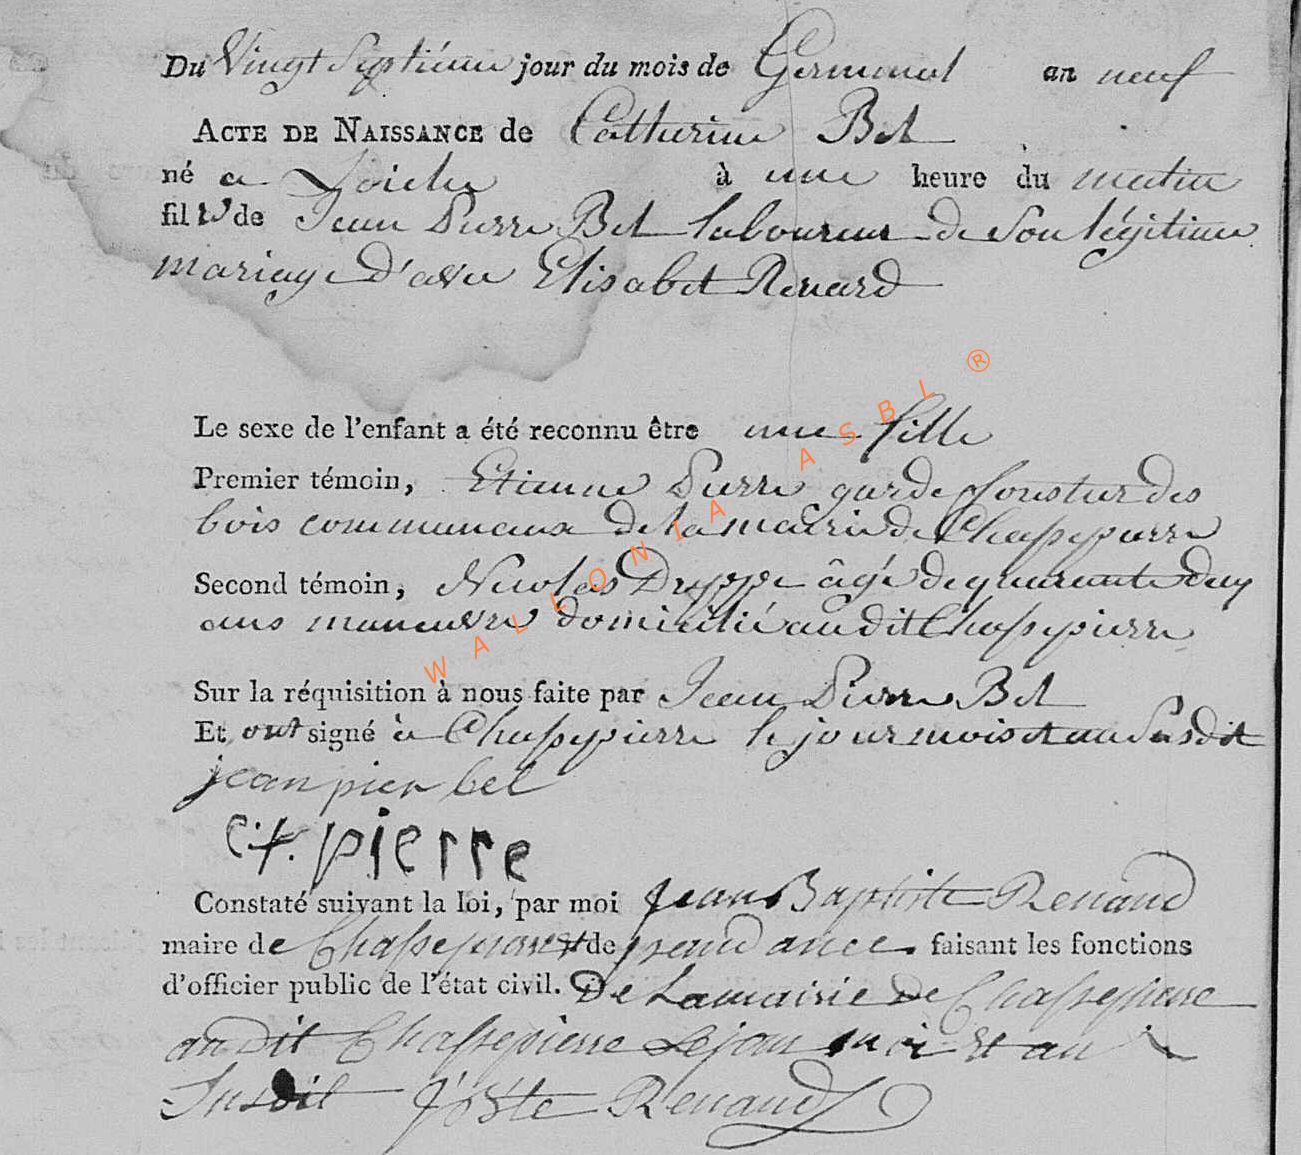 Du Vingt Septiéme jour du mois de Germinal an neuf
ACTE DE NAISSANCE de Catherine Bel
né a Laiche à une heure du matin
fille de Jean Pierre Bel laboureur de Son légitime
mariage D'avec Elisabet Renard
Le sexe de l'enfant a été reconnu être une fille
Premier témoin, Etienne Pierre garde forestier des
bois communeaux De la mairie de Chassepierre
Second témoin, Nicolas âgé de quarante deux
ans maneuvre domicilié audit Chassepierre
Sur la réquisition à nous faite par Jean Pierre Bel
Et ont signé à Chassepierre le jour mois et an Susdit
jean pier bel
et. pierre
Constaté suivant la loi, par moi Jean Baptiste Renaud
maire de Chassepierre et de faisant les fonctions
d'officier public de l'état civil. De La mairie de Chassepierre
audit Chassepierre Le jour moi Et an
Susdit Renaud
WALLONIA ASBL ®